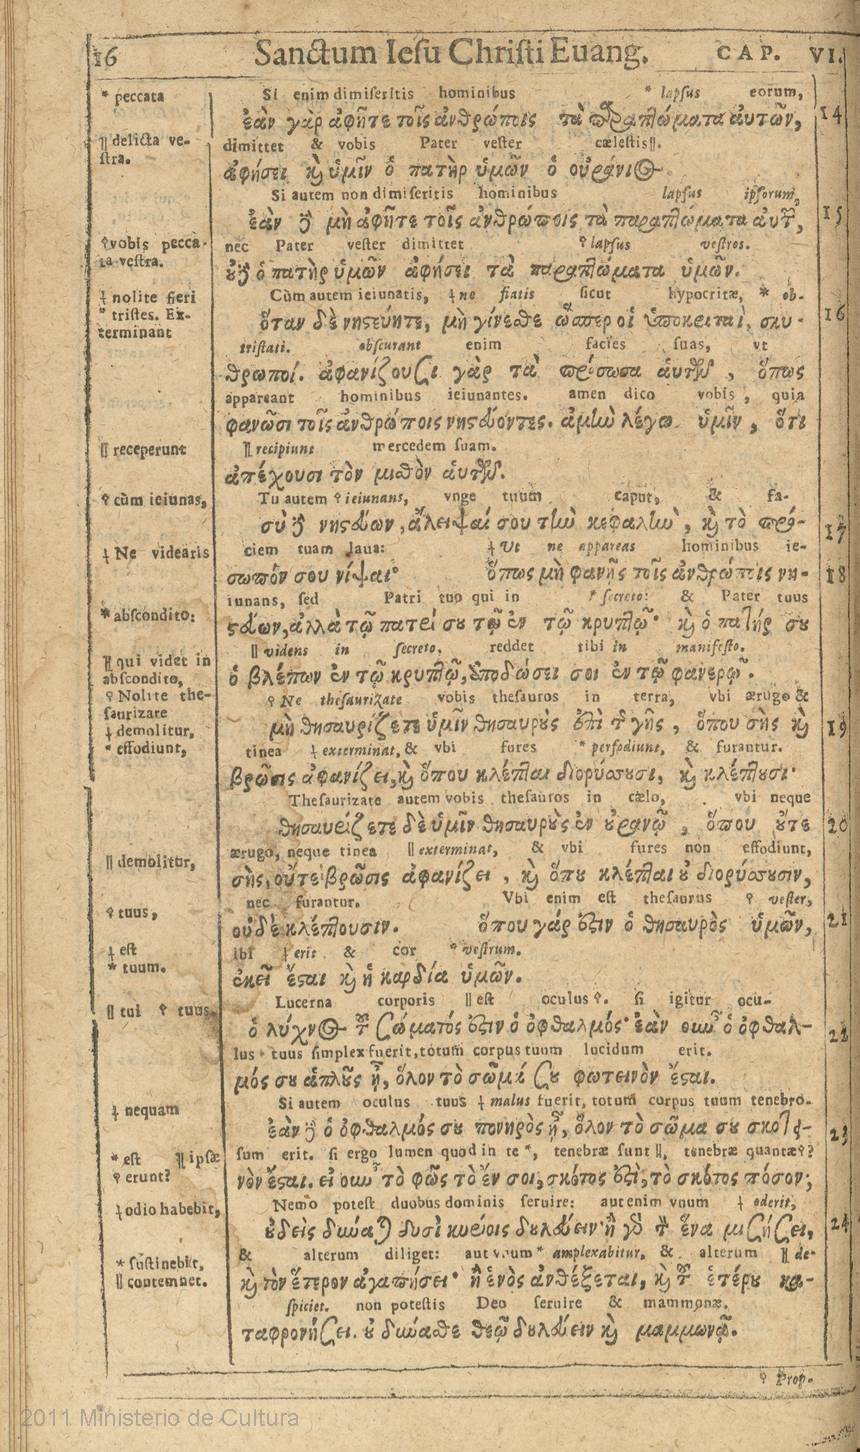 16 Sanctum Iesu Christi Euang. CAP. VI.
* peccata
¶ delicta ve-
stra.
♀ vobis pecca-
ta vestra.
⸸ nolite fieri
* tristes. Ex-
terminant
|| receperunt
♀ cùm ieiunas,
⸸ Ne videaris
* abscondito:
¶ qui videt in
abscondito,
♀ Nolite the-
saurizare
⸸ demolitur,
* effodiunt,
|| demolitur,
♀ tuus,
⸸ est
* tuum.
|| tui ♀ tuus.
⸸ nequam
* est ¶ ipsæ
♀ erunt?
⸸ odio habebit,
* sustinebit,
|| contemnet.
Si enim dimiseritis hominibus * lapsus eorum,
ἐὰν γὰρ ἀφῆτε τοῖς ἀνθρώποις τὰ παραπτώματα αὐτῶν, 14
dimittet & vobis Pater vester cælestis¶.
ἀφήσει καὶ ὑμῖν ὁ πατὴρ ὑμῶν ὁ οὐράνιος
Si autem non dimiseritis hominibus lapsus ipsorum,
ἐὰν δὲ μὴ ἀφῆτε τοῖς ἀνθρώποις τὰ παραπτώματα αὐτῶν, 15
nec Pater vester dimittet ♀ lapsus vestros.
οὐδὲ ὁ πατὴρ ὑμῶν ἀφήσει τὰ παραπτώματα ὑμῶν.
Cùm autem ieiunatis, ⸸ ne fiatis sicut hypocritæ, * ob-
ὅταν δὲ νηστεύητε, μὴ γίνεσθε ὥσπερ οἱ ὑποκριταὶ, σκυ- 16
tristati. obscurant enim facies suas, vt
θρωποί. ἀφανίζουσι γὰρ τὰ πρόσωπα αὐτῶν, ὅπως
appareant hominibus ieiunantes. amen dico vobis, quia
φανῶσι τοῖς ἀνθρώποις νηστεύοντες. ἀμὴν λέγω ὑμῖν, ὅτι
¶ recipiunt mercedem suam.
ἀπέχουσι τὸν μισθὸν αὐτῶν.
Tu autem ♀ ieiunans, vnge tuum caput, & fa-
σὺ δὲ νηστεύων, ἄλειψαί σου τὴν κεφαλὴν, καὶ τὸ πρό- 17
ciem tuam laua: ⸸ Vt ne appareas hominibus ie-
σωπόν σου νίψαι· ὅπως μὴ φανῇς τοῖς ἀνθρώποις νη- 18
iunans, sed Patri tuo qui in * secreto: & Pater tuus
στεύων, ἀλλὰ τῷ πατρί σου τῷ ἐν τῷ κρυπτῷ· καὶ ὁ πατήρ σου
|| videns in secreto, reddet tibi in manifesto.
ὁ βλέπων ἐν τῷ κρυπτῷ, ἀποδώσει σοι ἐν τῷ φανερῷ.
♀ Ne thesaurizate vobis thesauros in terra, vbi ærugo &
μὴ θησαυρίζετε ὑμῖν θησαυροὺς ἐπὶ τῆς γῆς, ὅπου σὴς καὶ 19
tinea ⸸ exterminat, & vbi fures * perfodiunt, & furantur.
βρῶσις ἀφανίζει, καὶ ὅπου κλέπται διορύσσουσι, καὶ κλέπτουσι·
Thesaurizate autem vobis thesauros in cælo, vbi neque
θησαυρίζετε δὲ ὑμῖν θησαυροὺς ἐν οὐρανῷ, ὅπου οὔτε 20
ærugo, neque tinea || exterminat, & vbi fures non effodiunt,
σὴς, οὔτε βρῶσις ἀφανίζει, καὶ ὅπου κλέπται οὐ διορύσσουσιν,
nec furantur. Vbi enim est thesaurus ♀ vester,
οὐδὲ κλέπτουσιν. ὅπου γάρ ἐστιν ὁ θησαυρὸς ὑμῶν, 21
ibi ⸸ erit & cor * vestrum.
ἐκεῖ ἔσται καὶ ἡ καρδία ὑμῶν.
Lucerna corporis || est oculus ♀. si igitur ocu-
ὁ λύχνος τοῦ σώματός ἐστιν ὁ ὀφθαλμός· ἐὰν οὖν ὁ ὀφθαλ- 22
lus tuus simplex fuerit, totum corpus tuum lucidum erit.
μός σου ἁπλοῦς ᾖ, ὅλον τὸ σῶμά σου φωτεινὸν ἔσται.
Si autem oculus tuus ⸸ malus fuerit, totum corpus tuum tenebro-
ἐὰν δὲ ὁ ὀφθαλμός σου πονηρὸς ᾖ, ὅλον τὸ σῶμα σου σκοτει- 23
sum erit. si ergo lumen quod in te *, tenebræ sunt ||, tenebræ quantæ ♀?
νὸν ἔσται. εἰ οὖν τὸ φῶς τὸ ἐν σοι, σκότος ἐστί, τὸ σκότος πόσον;
Nemo potest duobus dominis seruire: aut enim vnum ⸸ oderit,
οὐδεὶς δύναται δυσὶ κυρίοις δουλεύειν· ἢ γὰρ τὸν ἕνα μισήσει, 24
& alterum diliget: aut vnum * amplexabitur, & alterum ¶ de-
καὶ τὸν ἕτερον ἀγαπήσει· ἢ ἑνὸς ἀνθέξεται, καὶ τοῦ ἑτέρου κα-
spiciet. non potestis Deo seruire & mammonæ.
ταφρονήσει. οὐ δύνασθε θεῷ δουλεύειν καὶ μαμμωνᾷ.
♀ Prop.
2011 Ministerio de Cultura